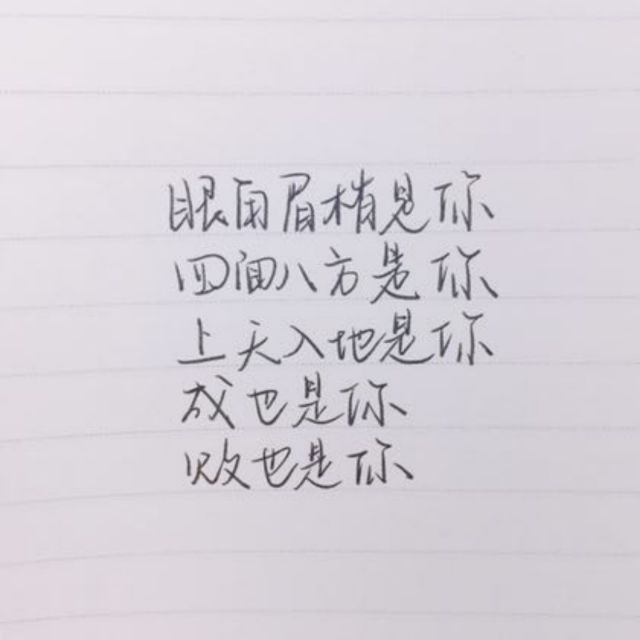 眼角眉梢是你
四面八方是你
上天入地是你
成也是你
败也是你